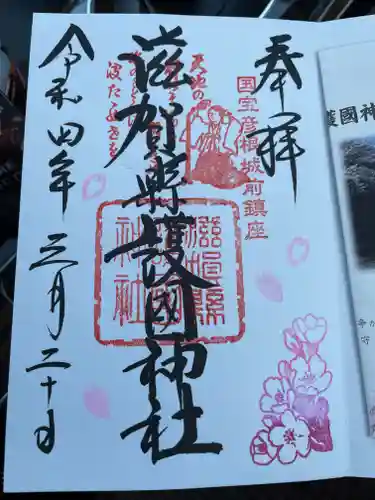 奉拝
国宝彦根城前鎮座
滋賀縣護國神社
滋賀縣護國神社
令和四年三月二十日
護國神